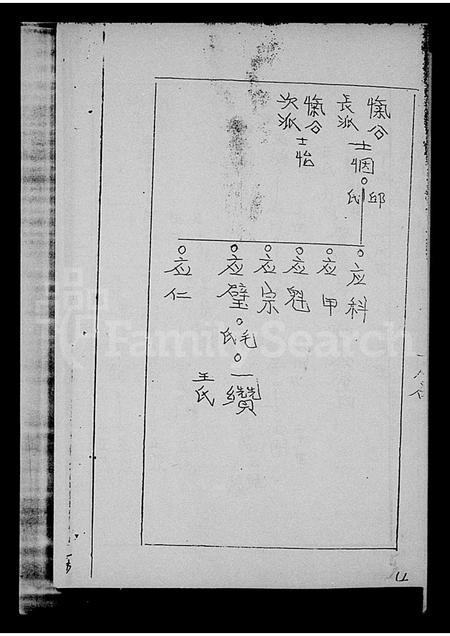 長派
士
邱氏
次派
士怡
应科
应甲
应魁
应宗
应璧
毛氏
一纘
王氏
应仁
FamilySearch